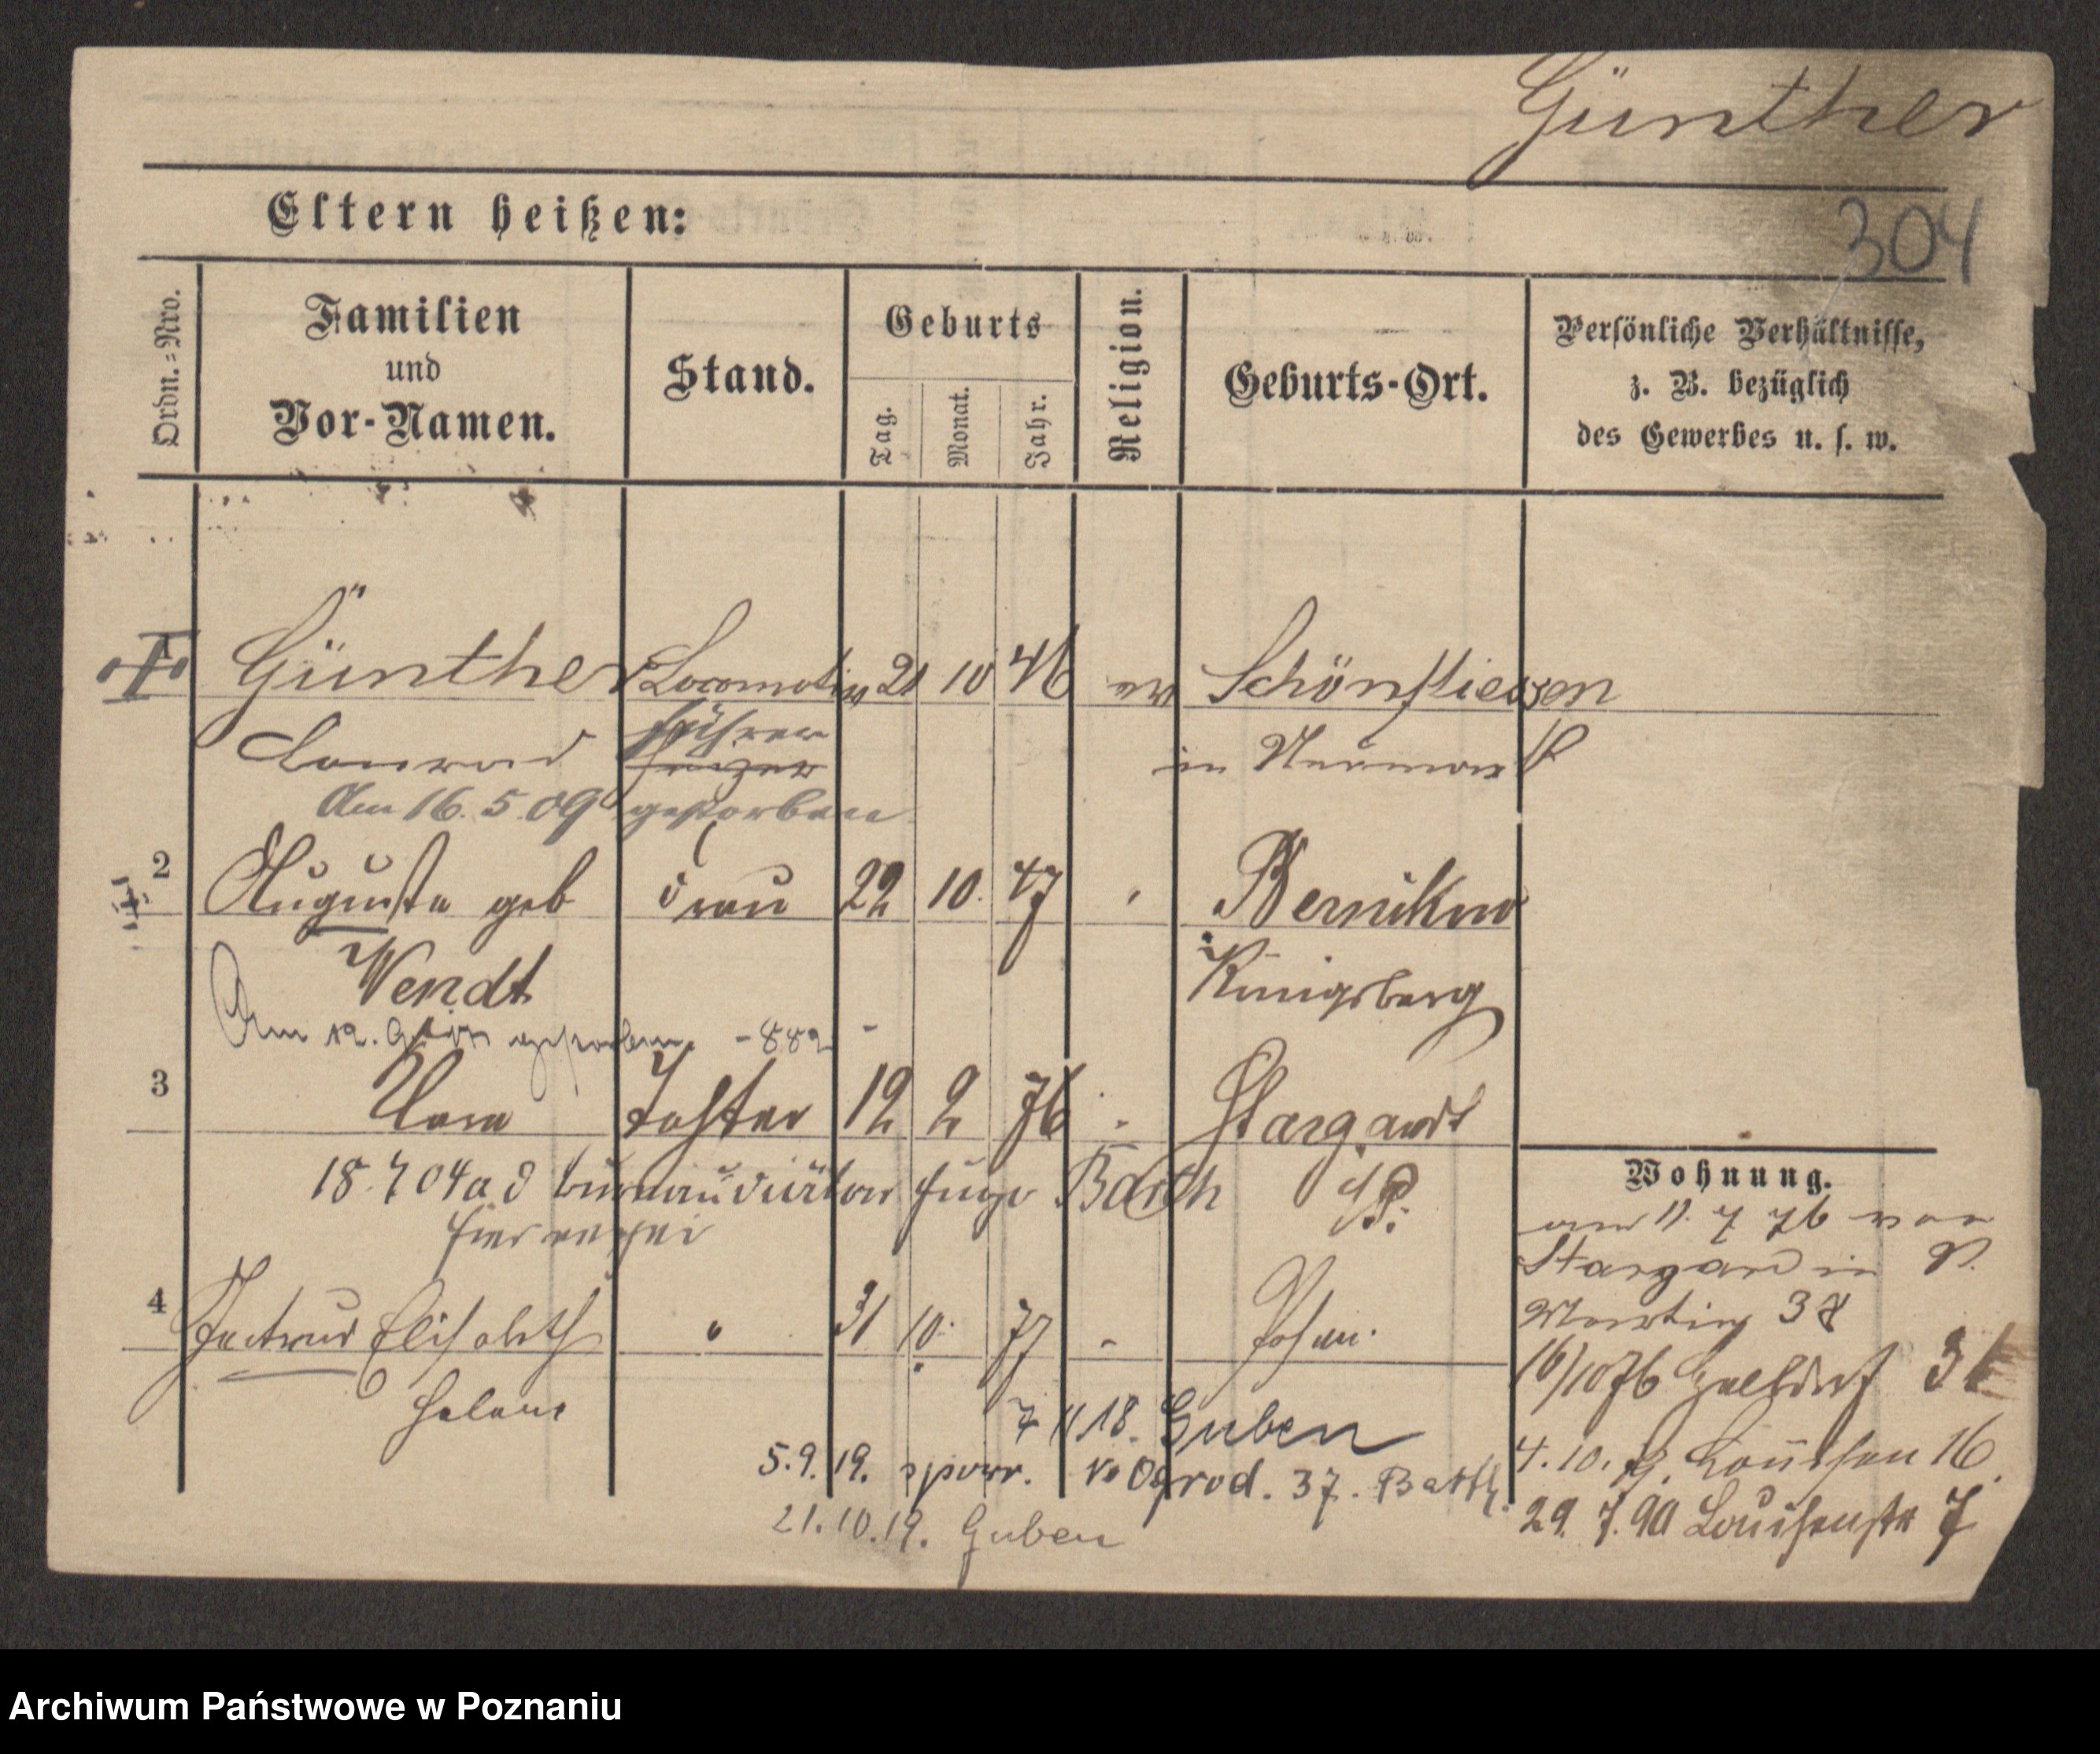 Günther
304
Eltern heißen:
Ordn.=Nro.
Familien
und
Vor-Namen.
Stand.
Geburts
Tag.
Monat.
Jahr.
Religion.
Geburts-Ort.
Persönliche Verhältnisse,
z. B. bezüglich
des Gewerbes u. s. w.
1
Günther Locomotiv 21 10 46 ev Schönfliessen
Conrad führer in Neumark
Am 16. 5. 09 gestorben
2 Auguste geb Frau 22 10. 47 Bernikow
Wendt Königsberg
Am 12. gestorben -882
3 Clara Tochter 12 2 76 Stargardt
18. 7 04 a. d Hugo Barth i/P.
4 Gertrud Elisabeth " 31 10. 77 - Posen.
Helene
7 11 18. Guben
5. 9. 19. Ogrod. 37. Barth.
21. 10. 19. Guben
Wohnung.
am 11. 7 76 von
Stargard in P.
Martin 38
16/10 76 Halbdorf 31
4. 10. Louisen 16
29. 7. 90 Louisenstr 7
Archiwum Państwowe w Poznaniu